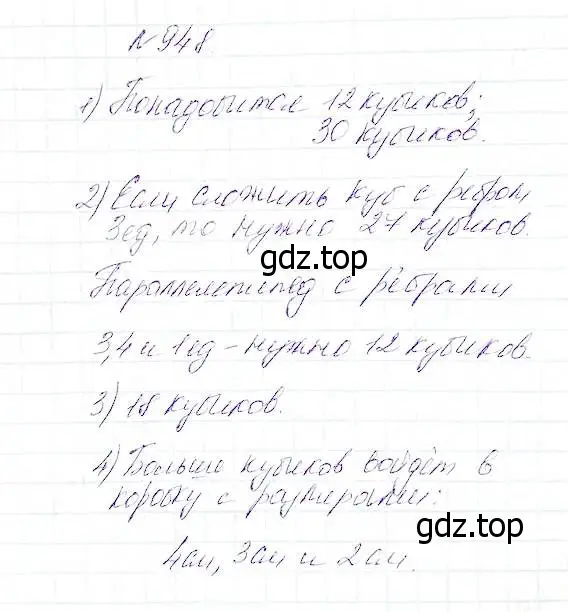 №948.
1) Понадобится 12 кубиков;
30 кубиков.
2) Если сложить куб с ребром
3ед, то нужно 27 кубиков.
gdz.top
Параллелепипед с рёбрами
3,4 и 1ед - нужно 12 кубиков.
3) 18 кубиков.
4) Больше кубиков войдёт в
коробку с размерами:
gdz.top
4см, 3см и 2см.